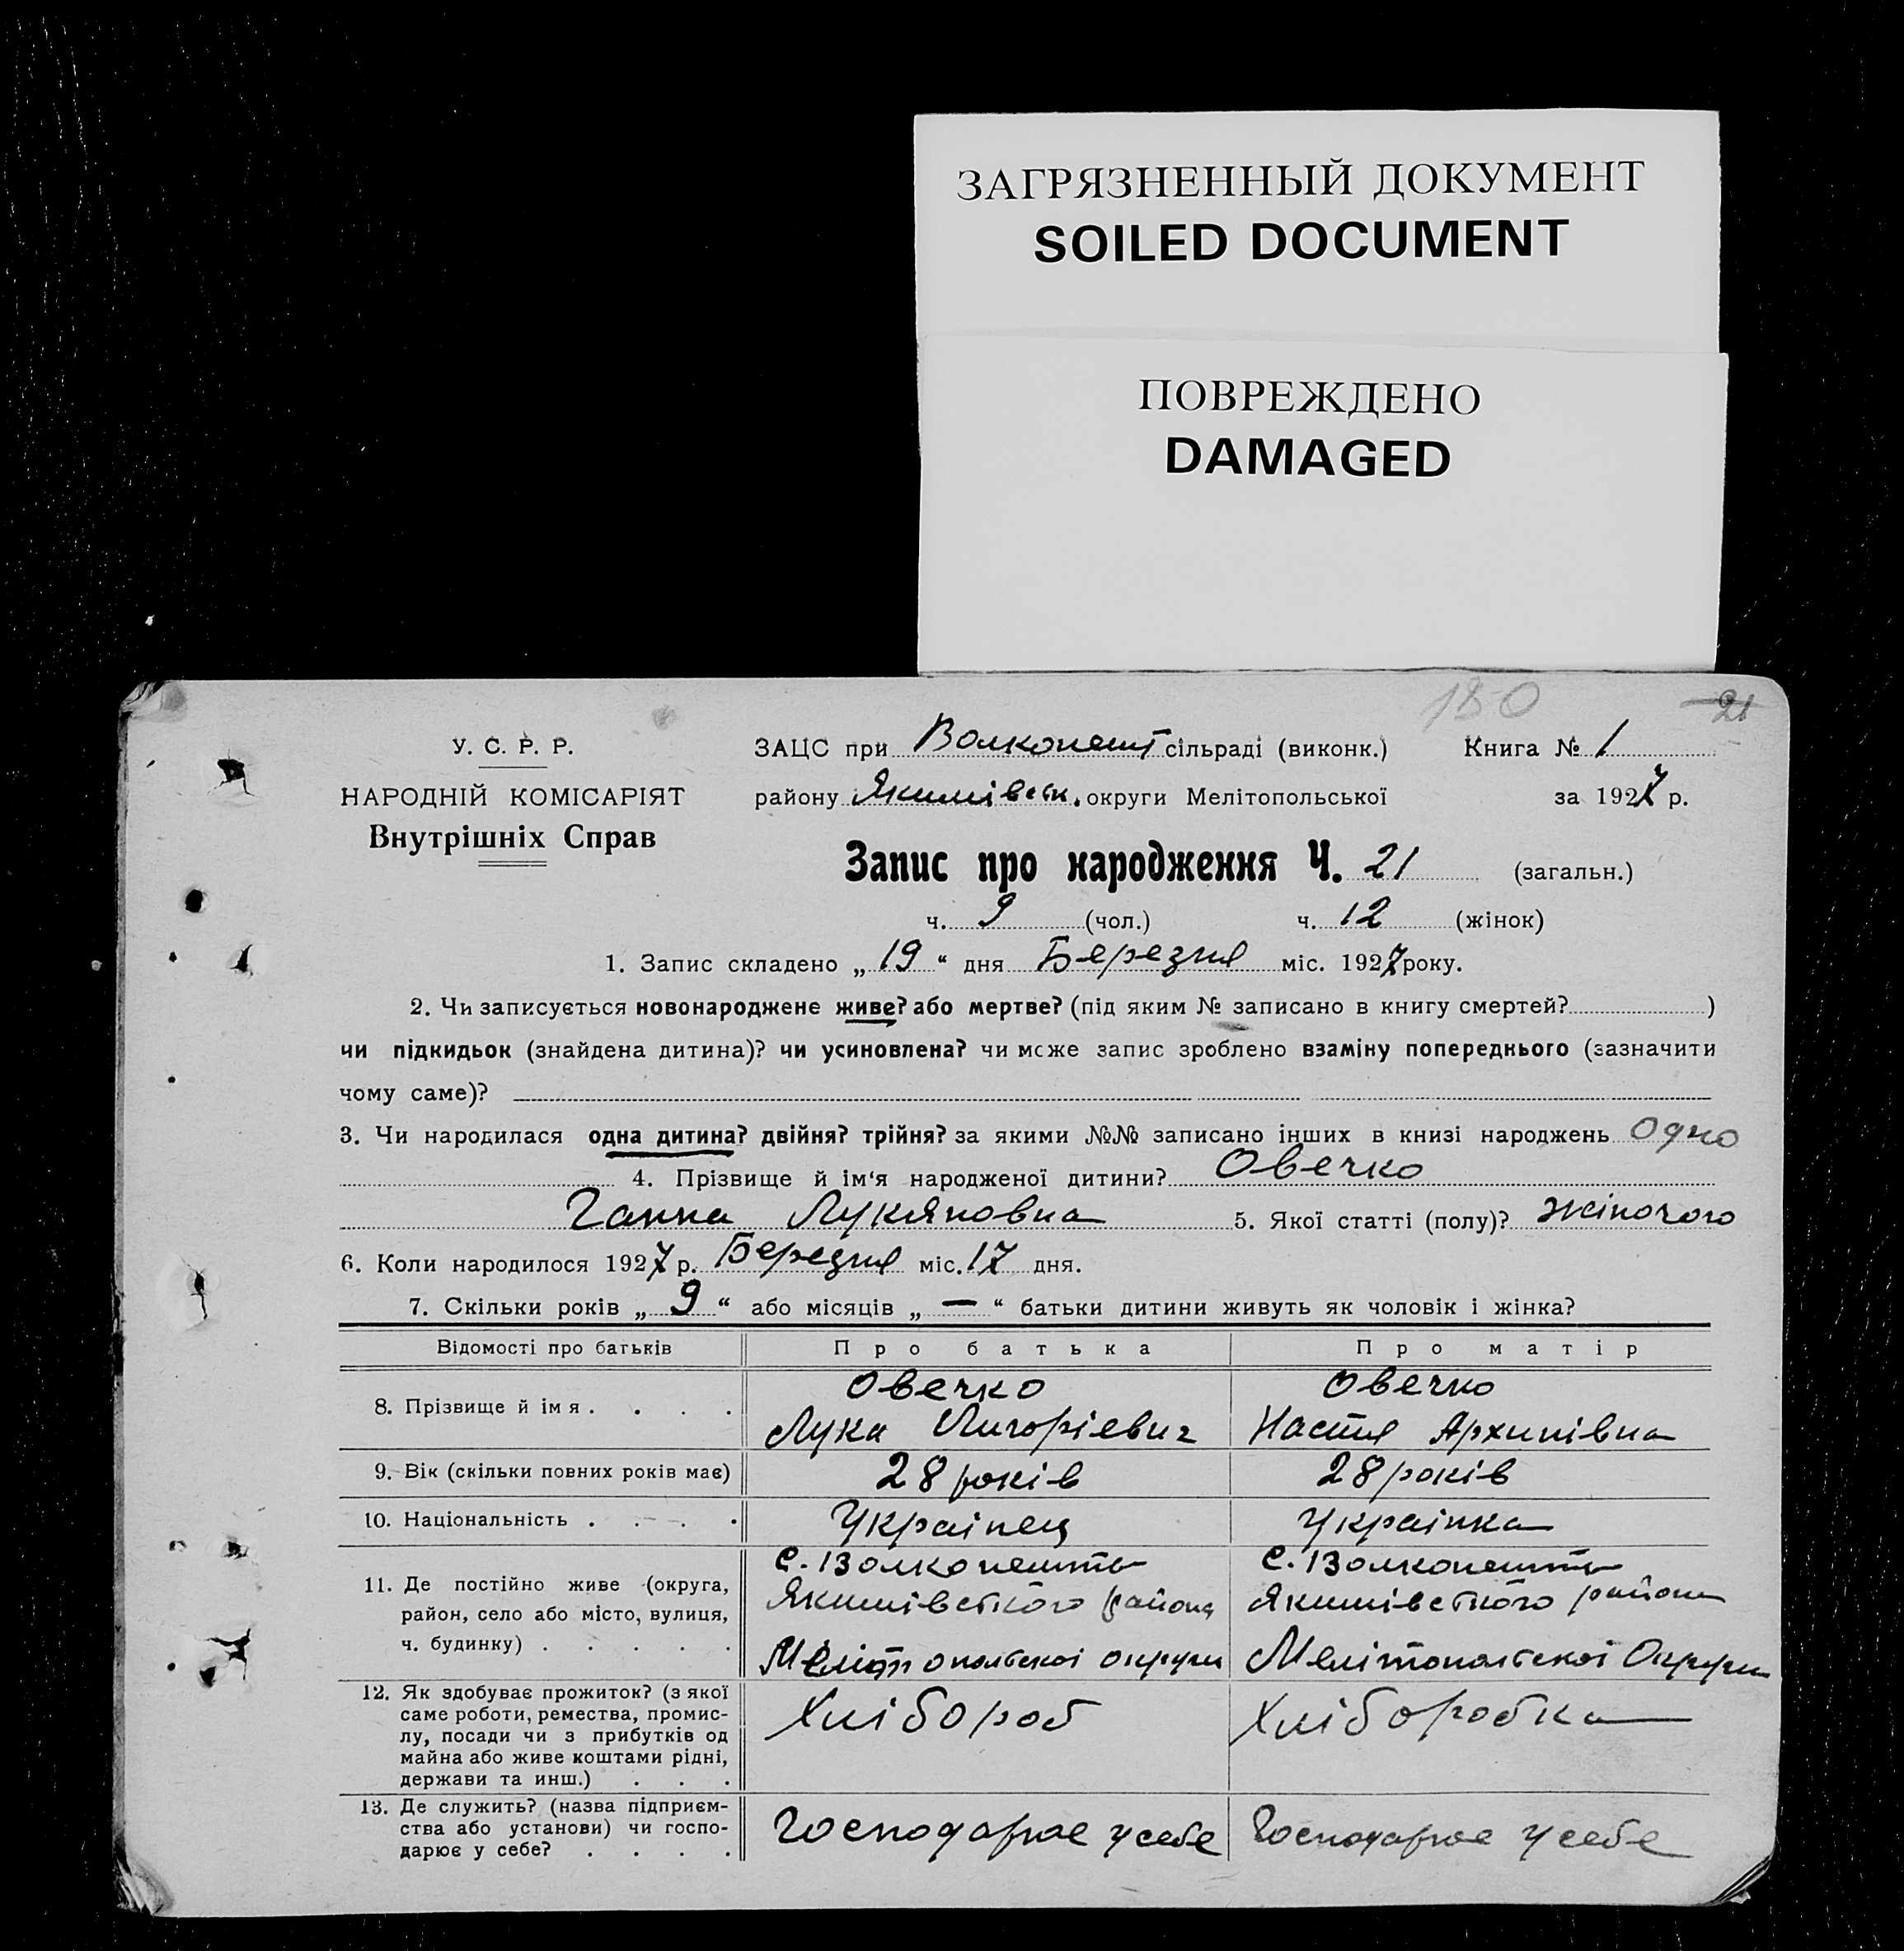 ЗАГРЯЗНЕННЫЙ ДОКУМЕНТ
SOILED DOCUMENT
ПОВРЕЖДЕНО
DAMAGED
180 21
У. С. Р. Р.
НАРОДНІЙ КОМІСАРІЯТ
Внутрішніх Справ
ЗАЦС при Волконешт сільраді (виконк.) Книга № 1
району Якимівськ. округи Мелітопольської за 1927 р.
Запис про народження Ч. 21 (загальн.)
ч. 9 (чол.) ч. 12 (жінок)
1. Запис складено „ 19 “ дня Березня міс. 1927 року.
2. Чи записується новонароджене живе? або мертве? (під яким № записано в книгу смертей? )
чи підкидьок (знайдена дитина)? чи усиновлена? чи може запис зроблено взаміну попереднього (зазначити
чому саме)?
3. Чи народилася одна дитина? двійня? трійня? за якими №№ записано інших в книзі народжень Одно
4. Прізвище й ім‘я народженої дитини? Овечко
Ганна Лукяновна 5. Якої статті (полу)? жіночого
6. Коли народилося 1927 р. Березня міс. 17 дня.
7. Скільки років „ 9 “ або місяців „ — “ батьки дитини живуть як чоловік і жінка?
Відомості про батьків Про батька Про матір
8. Прізвище й імя . . . .
Овечко Овечко
Лука Лигоріевич Настя Архипівна
9. Вік (скільки повних років має) 28 років 28 років
10. Національність . . . . Україпец Українка
11. Де постійно живе (округа,
район, село або місто, вулиця,
ч. будинку) . . . . .
с. Волконешты с. Волконешты
Якимівського района Якимівського района
Мелітопольскоі округи Мелітопольскоі Округи
12. Як здобуває прожиток? (з якої
саме роботи, ремества, промис-
лу, посади чи з прибутків од
майна або живе коштами рідні,
держави та инш.) . . .
Хлібороб Хліборобка
13. Де служить? (назва підприєм-
ства або установи) чи госпо-
дарює у себе? . . . .
Господарює у себе Господарює у себе